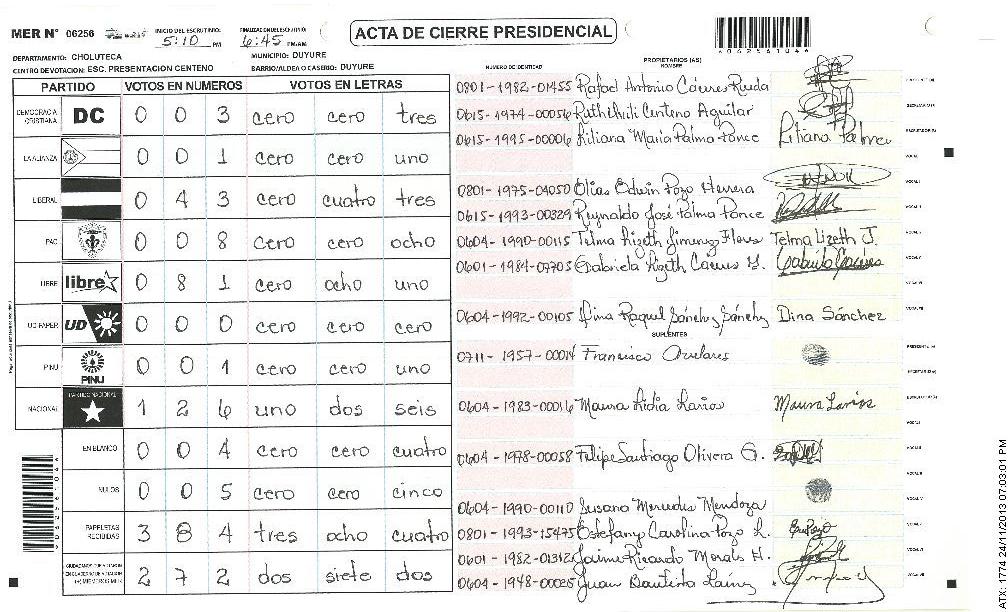 MER N° 06256
INICIO DEL ESCRUTINIO: 5:10 PM
FINALIZACION DEL ESCRUTINIO: 6:45 PM/AM
ACTA DE CIERRE PRESIDENCIAL
DEPARTAMENTO: CHOLUTECA
MUNICIPIO: DUYURE
CENTRO DE VOTACION: ESC. PRESENTACION CENTENO
BARRIO/ALDEA O CASERIO: DUYURE
PARTIDO VOTOS EN NUMEROS VOTOS EN LETRAS
DEMOCRACIA CRISTIANA DC 0 0 3 cero cero tres
LA ALIANZA 0 0 1 cero cero uno
LIBERAL 0 4 3 cero cuatro tres
PAC 0 0 8 cero cero ocho
LIBRE libre 0 8 1 cero ocho uno
UD FAPER UD 0 0 0 cero cero cero
PINU PINU 0 0 1 cero cero uno
NACIONAL PARTIDO NACIONAL 1 2 6 uno dos seis
EN BLANCO 0 0 4 cero cero cuatro
NULOS 0 0 5 cero cero cinco
PAPELETAS RECIBIDAS 3 8 4 tres ocho cuatro
2 7 2 dos siete dos
NUMERO DE IDENTIDAD
PROPIETARIOS (AS)
NOMBRE
0801-1982-01455 Rafael Antonio Cáceres Rueda
0615-1974-00056 Centeno Aguilar
0615-1995-00006 Liliana María Palma Ponce
0801-1975-04050 Edwin Pozo Herrera
0615-1993-00329 Reynaldo José Palma Ponce
0604-1990-00115 Telma Lizeth Jimenez Flores Telma Lizeth J.
0601-1984-07705 Gabriela Lizeth
0604-1992-00105 Dina Raquel Sánchez Sánchez Dina Sánchez
SUPLENTES
0711-1957-00014 Francisco
0604-1983-00016 Maura Lidia Larios Maura Larios
0604-1978-00058 Felipe Santiago Olivera G.
0604-1990-00110 Susana Mercedes Mendoza
0801-1993-15475 Estefany Carolina Pozo L.
0601-1982-01312 Jaime Ricardo M.
0604-1948-00025 Juan Bautista Lainez
ATX 1774 24/11/2013 07:03:01 PM